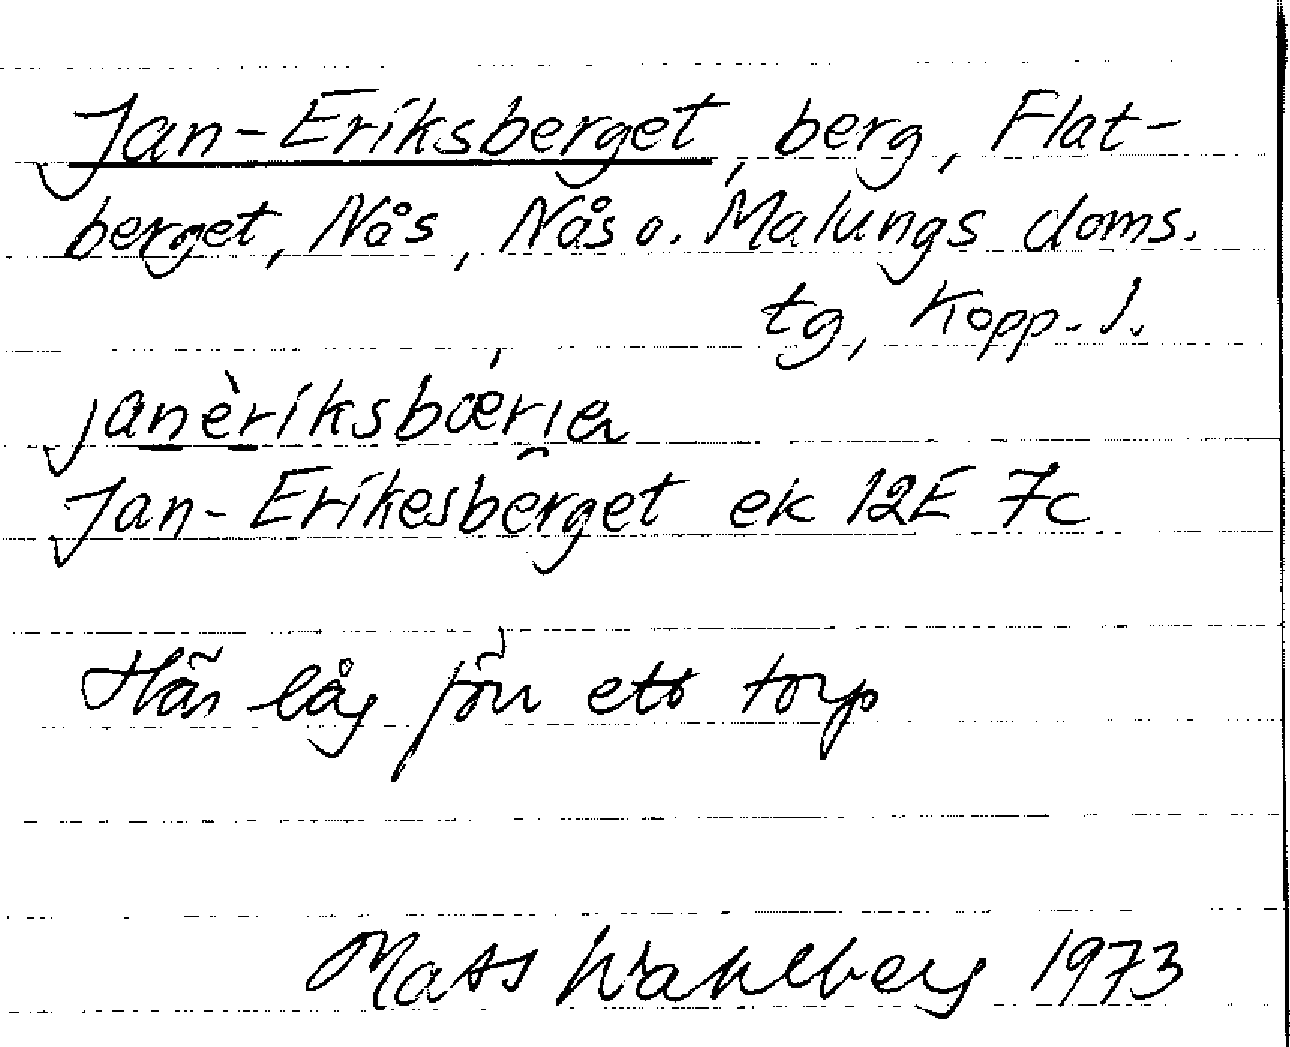 Jan-Eriksberget, berg, Flat-
berget, Nås, Nås o. Malungs doms.
tg, Kopp. l.
Jan-Erikesberget ek 12E 7c
Här låg förr ett torp
Mats Wahlberg 1973